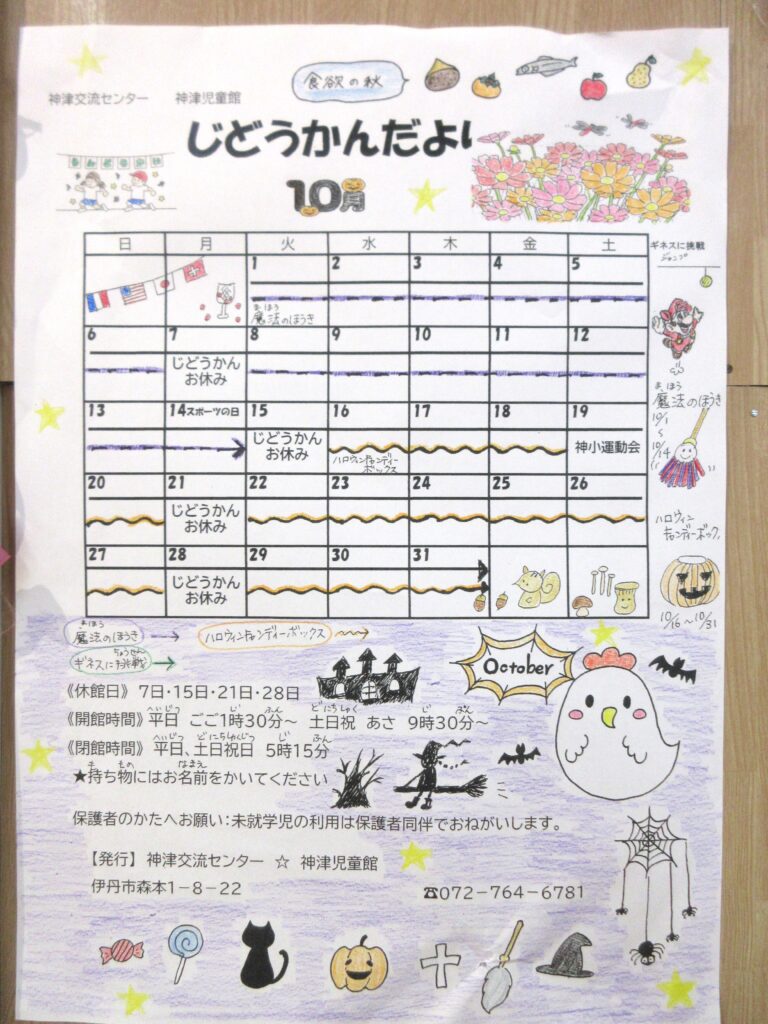 食欲の秋
神津交流センター　神津児童館
じどうかんだより
10月
日 月 火 水 木 金 土
ギネスに挑戦
ジャンプ
1 2 3 4 5
まほう
魔法のほうき
6 7 8 9 10 11 12
じどうかん
お休み
まほう
魔法のほうき
10/1
〜
10/14
13 14スポーツの日 15 16 17 18 19
じどうかん
お休み
ハロウィンキャンディー
ボックス
神小運動会
20 21 22 23 24 25 26
じどうかん
お休み
ハロウィン
キャンディーボックス
27 28 29 30 31
じどうかん
お休み
10/16〜10/31
まほう
魔法のほうき
ハロウィンキャンディーボックス
ちょうせん
ギネスに挑戦
October
《休館日》 7日・15日・21日・28日
へいじつ じ ふん どにちしゅく じ ふん
《開館時間》平日 ごご1時30分〜 土日祝 あさ 9時30分〜
へいじつ どにちしゅくじつ じ ふん
《閉館時間》 平日、土日祝日 5時15分
も もの なまえ
★持ち物にはお名前をかいてください
保護者のかたへお願い：未就学児の利用は保護者同伴でおねがいします。
【発行】 神津交流センター ☆ 神津児童館
伊丹市森本1－8－22
☎072－764－6781